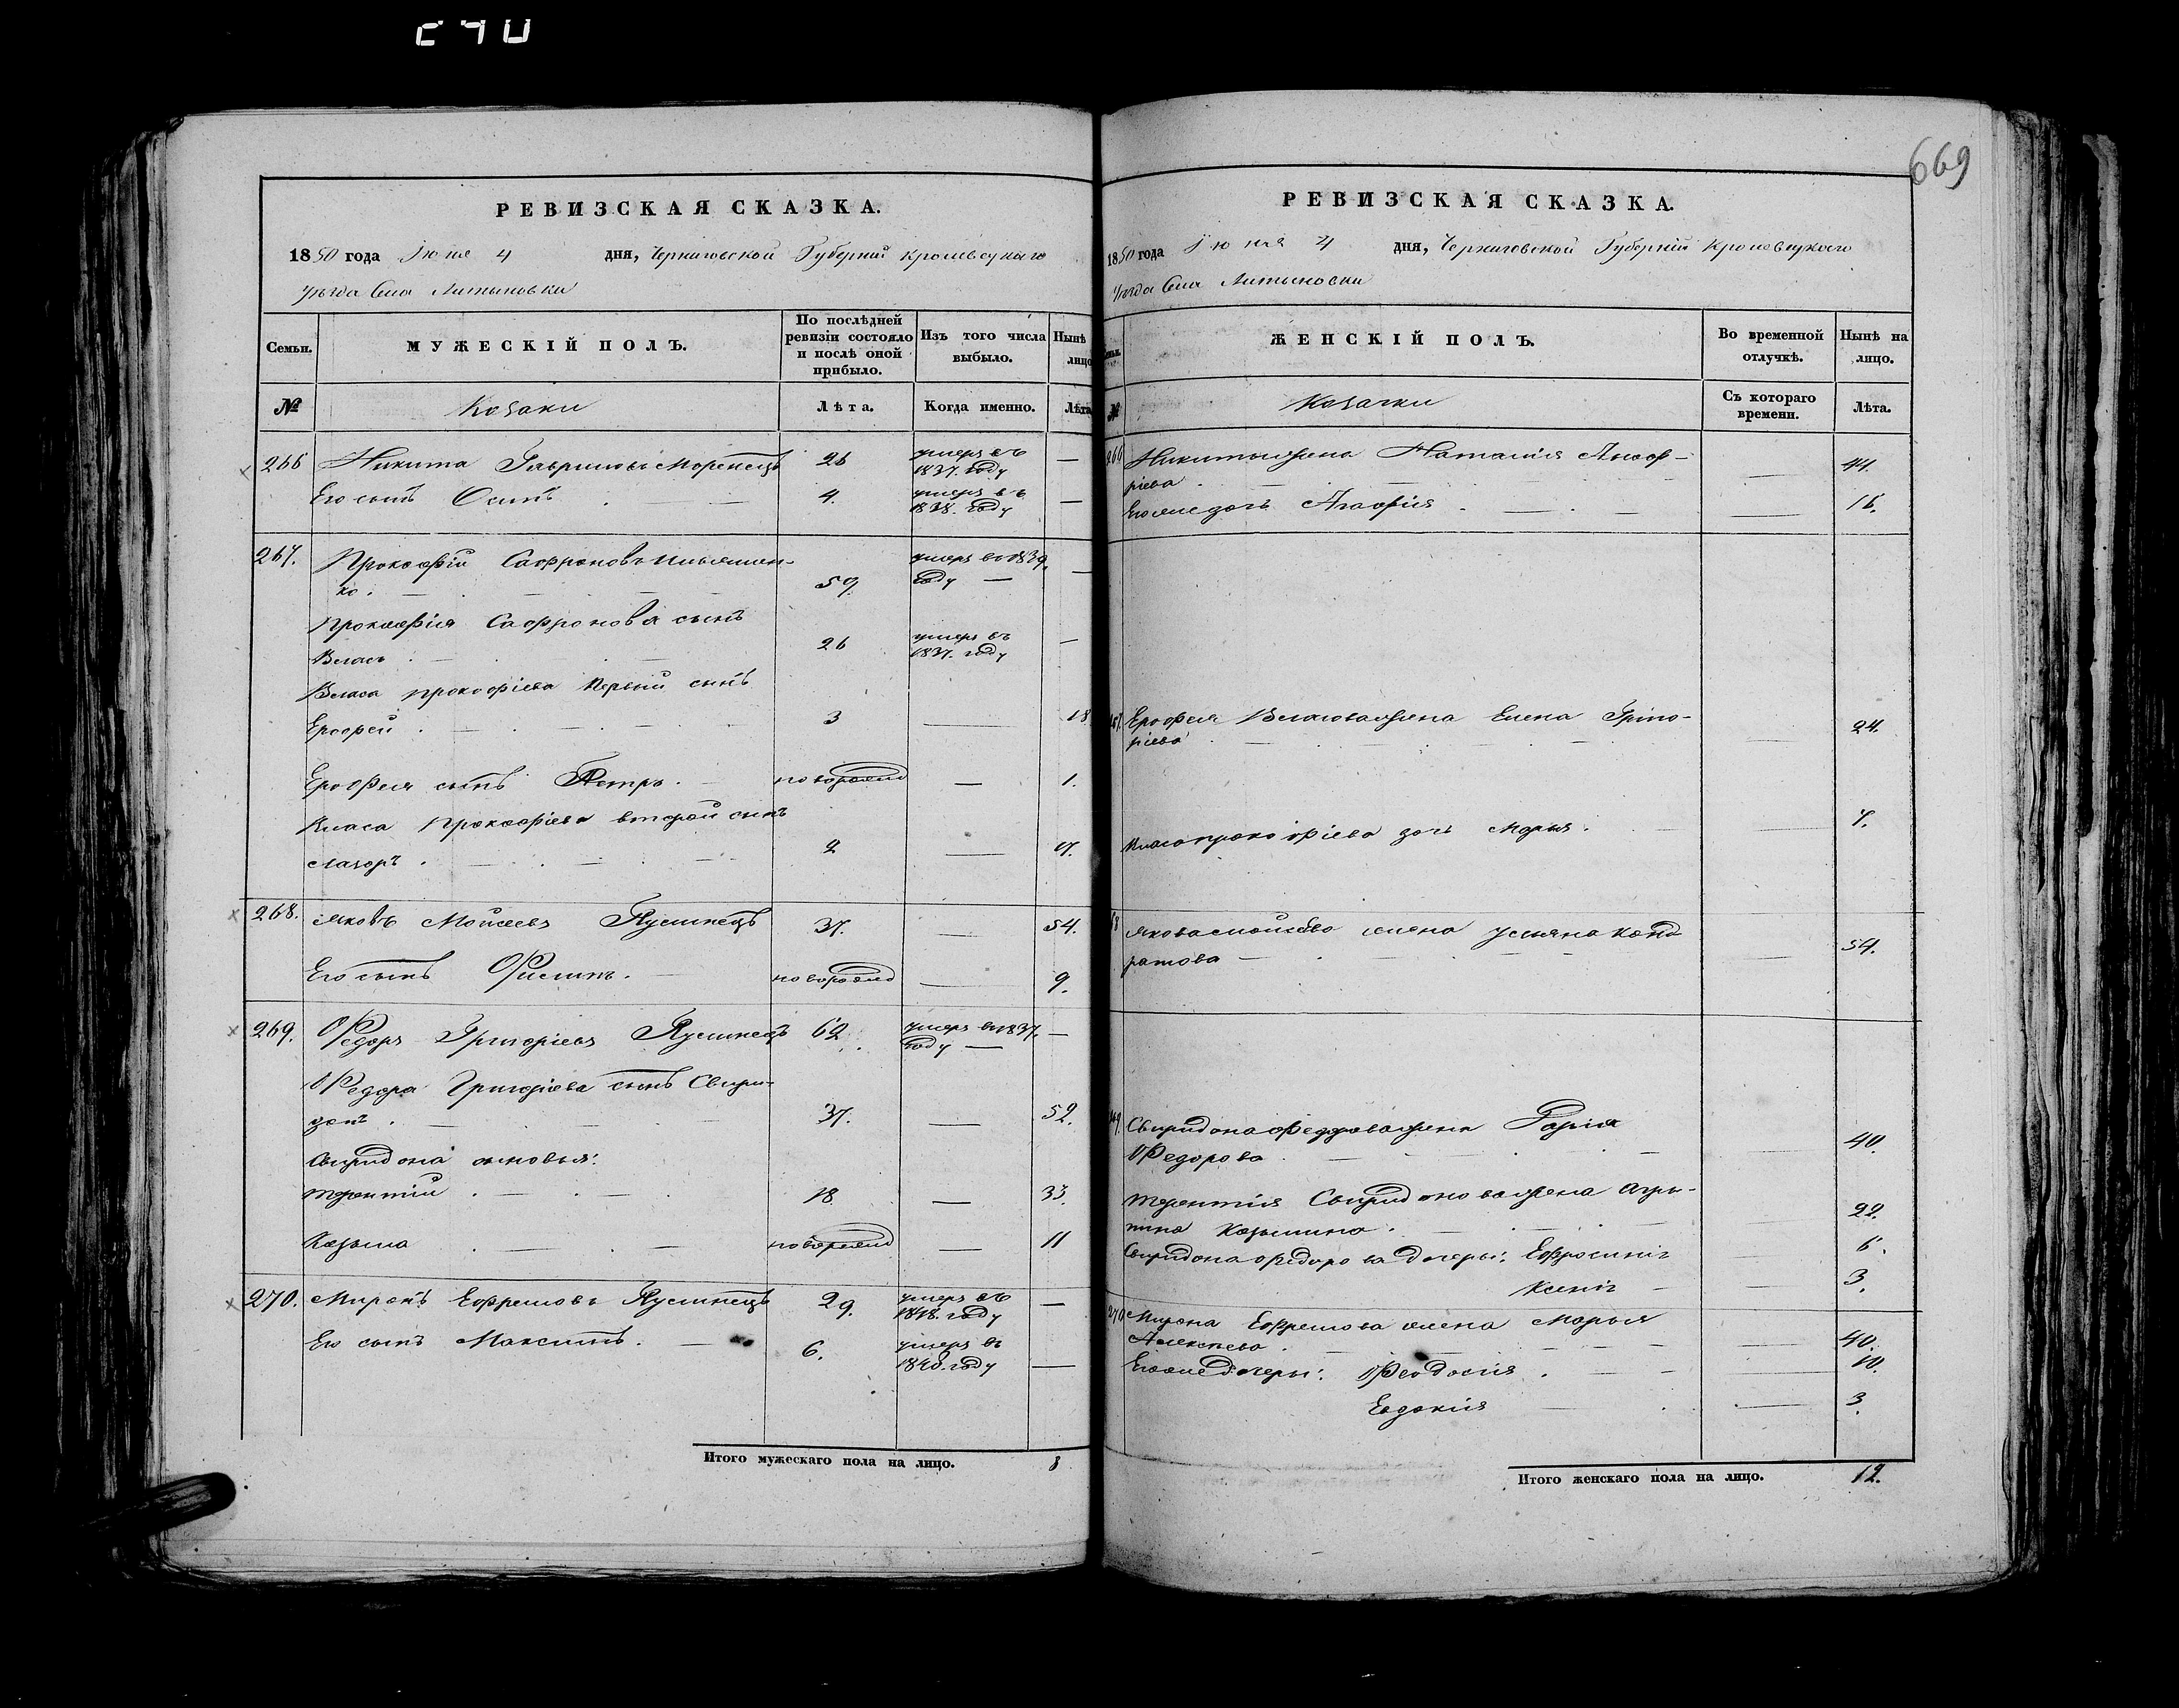 669
РЕВИЗСКАЯ СКАЗКА.
1850 года Июня 4 дня, Черниговской Губернии Кролевецкаго
уѣзда Села Литвиновки
Семьи.
МУЖЕСКІЙ ПОЛЪ.
По послѣдней ревизіи состояло и послѣ оной прибыло.
Изъ того числа выбыло.
Нынѣ лицо
№
Козаки
Лѣта.
Когда именно.
Лѣта
266 Никита Гавриловъ Моренецъ 26 умеръ въ 1837. году —
Его сынъ Осипъ 4. умеръ въ 1838. году —
267. Прокофій Сафроновъ Ильяшен-
ко. 59. умеръ въ 1839. году —
Прокофія Сафронова сынъ
Власъ 26 умеръ въ 1837. году —
Власа Прокофіева первый сынъ
Ерофей 3 — 18
Ерофея сынъ Петръ. новорожд — 1.
Власа Прокофіева второй сынъ
Лазоръ 2 — 17.
268. Яковъ Моисеевъ 37. — 54.
Его сынъ Филипъ. новорожд — 9.
269. Федоръ Григоріевъ 62 умеръ въ 1837. году —
Федора Григоріева сынъ Свири-
донъ 37. — 52.
Свиридона сыновья:
Терентій 18. — 33.
Козьма новорожд — 11
270. Миронъ Ефремовъ 29. умеръ въ 1848. году —
Его сынъ Максимъ. 6. умеръ въ 1840. году —
Итого мужескаго пола на лицо. 8
РЕВИЗСКАЯ СКАЗКА.
1850 года Июня 4 дня, Черниговской Губерніи Кролевецкого
уѣзда Села Литвиновки
ЖЕНСКІЙ ПОЛЪ.
Во временной отлучкѣ.
Нынѣ на лицо.
№
Козачки
Съ котораго времени.
Лѣта.
266 Никиты жена Наталія Ануф-
ріева — 44.
Его же дочь Агафія — 16.
267. Ерофея Власова жена Елена Григо-
ріева — 24.
Власа Прокофіева дочь Марья. — 7.
68 Якова Моисеева жена Ульяна Конд
ратова — 54.
269. Свиридона Федорова жена
Федорова — 40.
Терентія Свиридонова жена Агри-
пина Козьмина. — 22.
Свиридона Федорова дочеры: Ефросинія — 6.
Ксенія — 3.
270 Мирона Ефремова жена Марья
Алексѣева — 40.
Его же дочеры: Феодосія — 10.
Евдокія — 3.
Итого женскаго пола на лицо. 12.